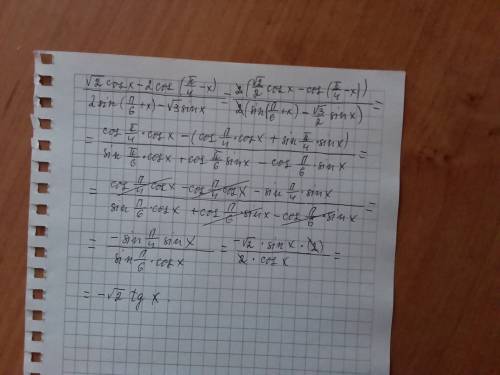 (√2 cos x - 2 cos (π/4 - x)) / (2 sin (π/6 + x) - √3 sin x) = 2(√2/2 cos x - cos (π/4 - x)) / 2(sin (π/6 + x) - √3/2 sin x) =
= (cos π/4 · cos x - (cos π/4 · cos x + sin π/4 · sin x)) / (sin π/6 · cos x + cos π/6 sin x - cos π/6 · sin x) =
= (cos π/4 cos x - cos π/4 cos x - sin π/4 · sin x) / (sin π/6 · cos x + cos π/6 · sin x - cos π/6 · sin x) =
= (- sin π/4 sin x) / (sin π/6 · cos x) = (-√2 · sin x · (2)) / (2 · cos x) =
= -√2 tg x.